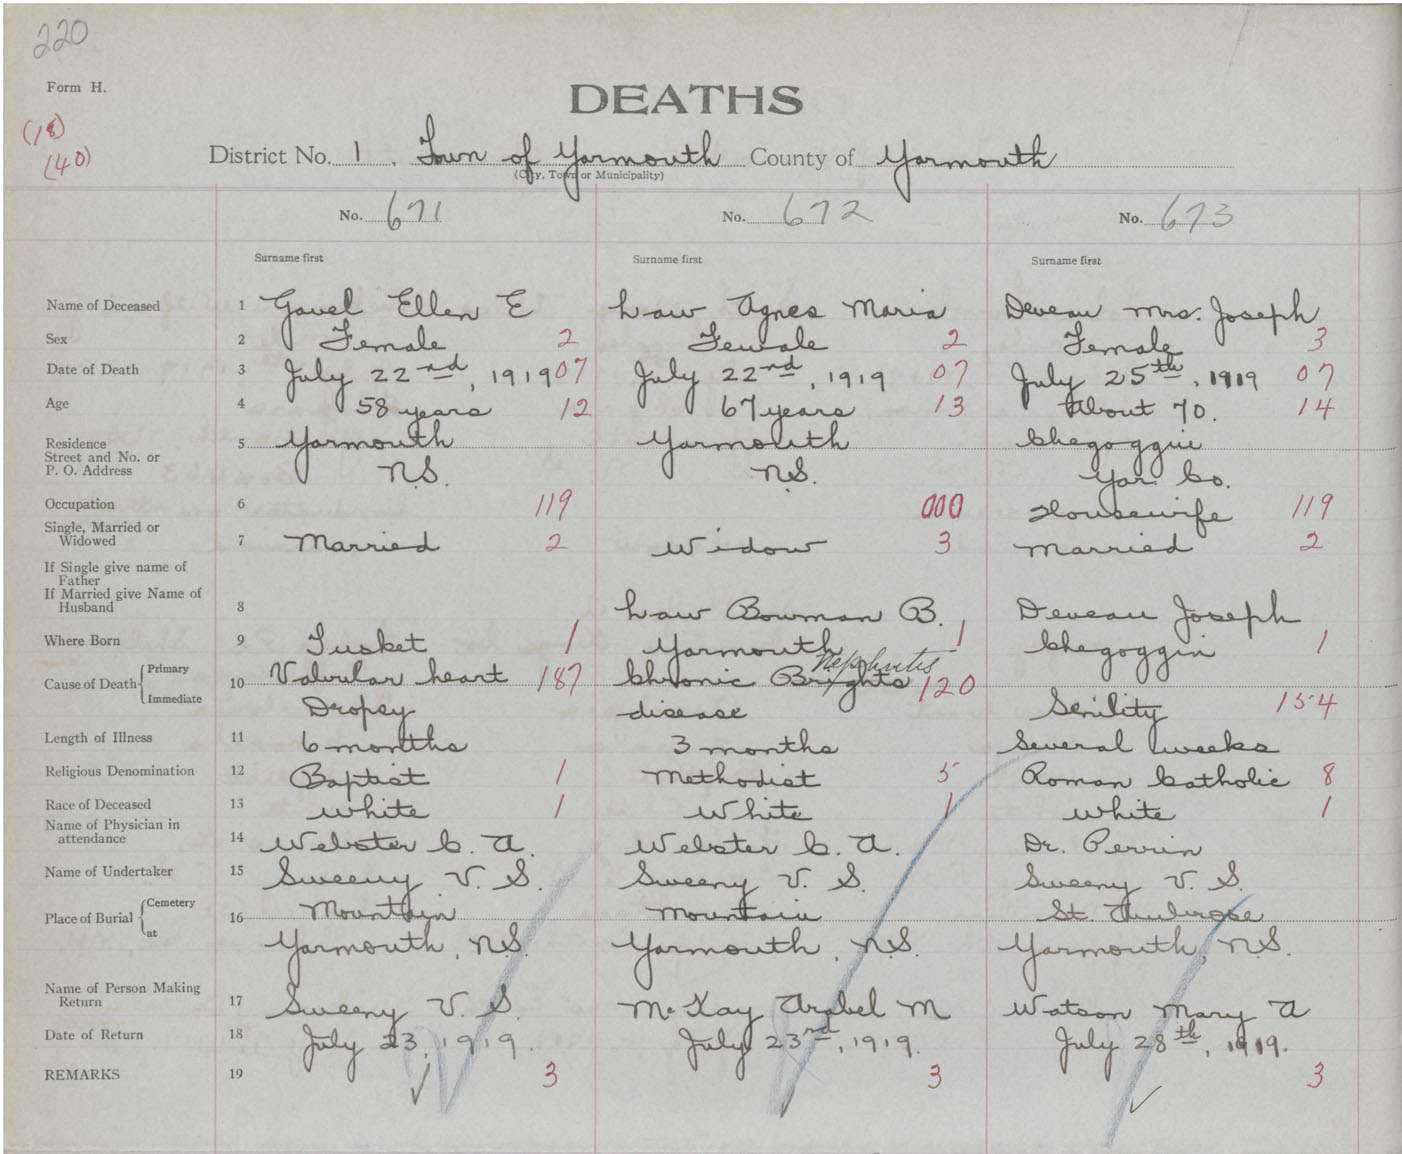 220
Form H.
DEATHS
(18)
(40)
District No. 1. Town of Yarmouth County of Yarmouth
(City, Town or Municipality)
No. 671 No. 672 No. 673
Surname first Surname first Surname first
Name of Deceased 1 Gavel Ellen E Law Agnes Maria Deveau Mrs. Joseph
Sex 2 Female 2 Female 2 Female 3
Date of Death 3 July 22nd, 1919 07 July 22nd, 1919 07 July 25th, 1919 07
Age 4 58 years 12 67 years 13 About 70. 14
Residence 5 Yarmouth Yarmouth Chegoggin
Street and No. or
P. O. Address N.S. N.S. Yar. Co.
Occupation 6 119 000 Housewife 119
Single, Married or
Widowed 7 Married 2 Widow 3 Married 2
If Single give name of
Father
If Married give Name of
Husband 8 Law Bowman B. Deveau Joseph
Where Born 9 Tusket 1 Yarmouth 1 Chegoggin 1
Nephritis
Cause of Death Primary 10 Valvular heart 187 Chronic Brights 120
Immediate Dropsy disease Senility 154
Length of Illness 11 6 months 3 months Several weeks
Religious Denomination 12 Baptist 1 Methodist 5 Roman Catholic 8
Race of Deceased 13 White 1 White 1 White 1
Name of Physician in
attendance 14 Webster C. A. Webster C. A. Dr. Perrin
Name of Undertaker 15 Sweeny V. S. Sweeny V. S. Sweeny V. S.
Place of Burial Cemetery 16 Mountain Mountain St. Ambrose
at Yarmouth, N.S. Yarmouth, N.S. Yarmouth, N.S.
Name of Person Making
Return 17 Sweeny V. S. McKay Arabel M Watson Mary A
Date of Return 18 July 23, 1919. July 23rd, 1919. July 28th, 1919.
REMARKS 19 3 3 3